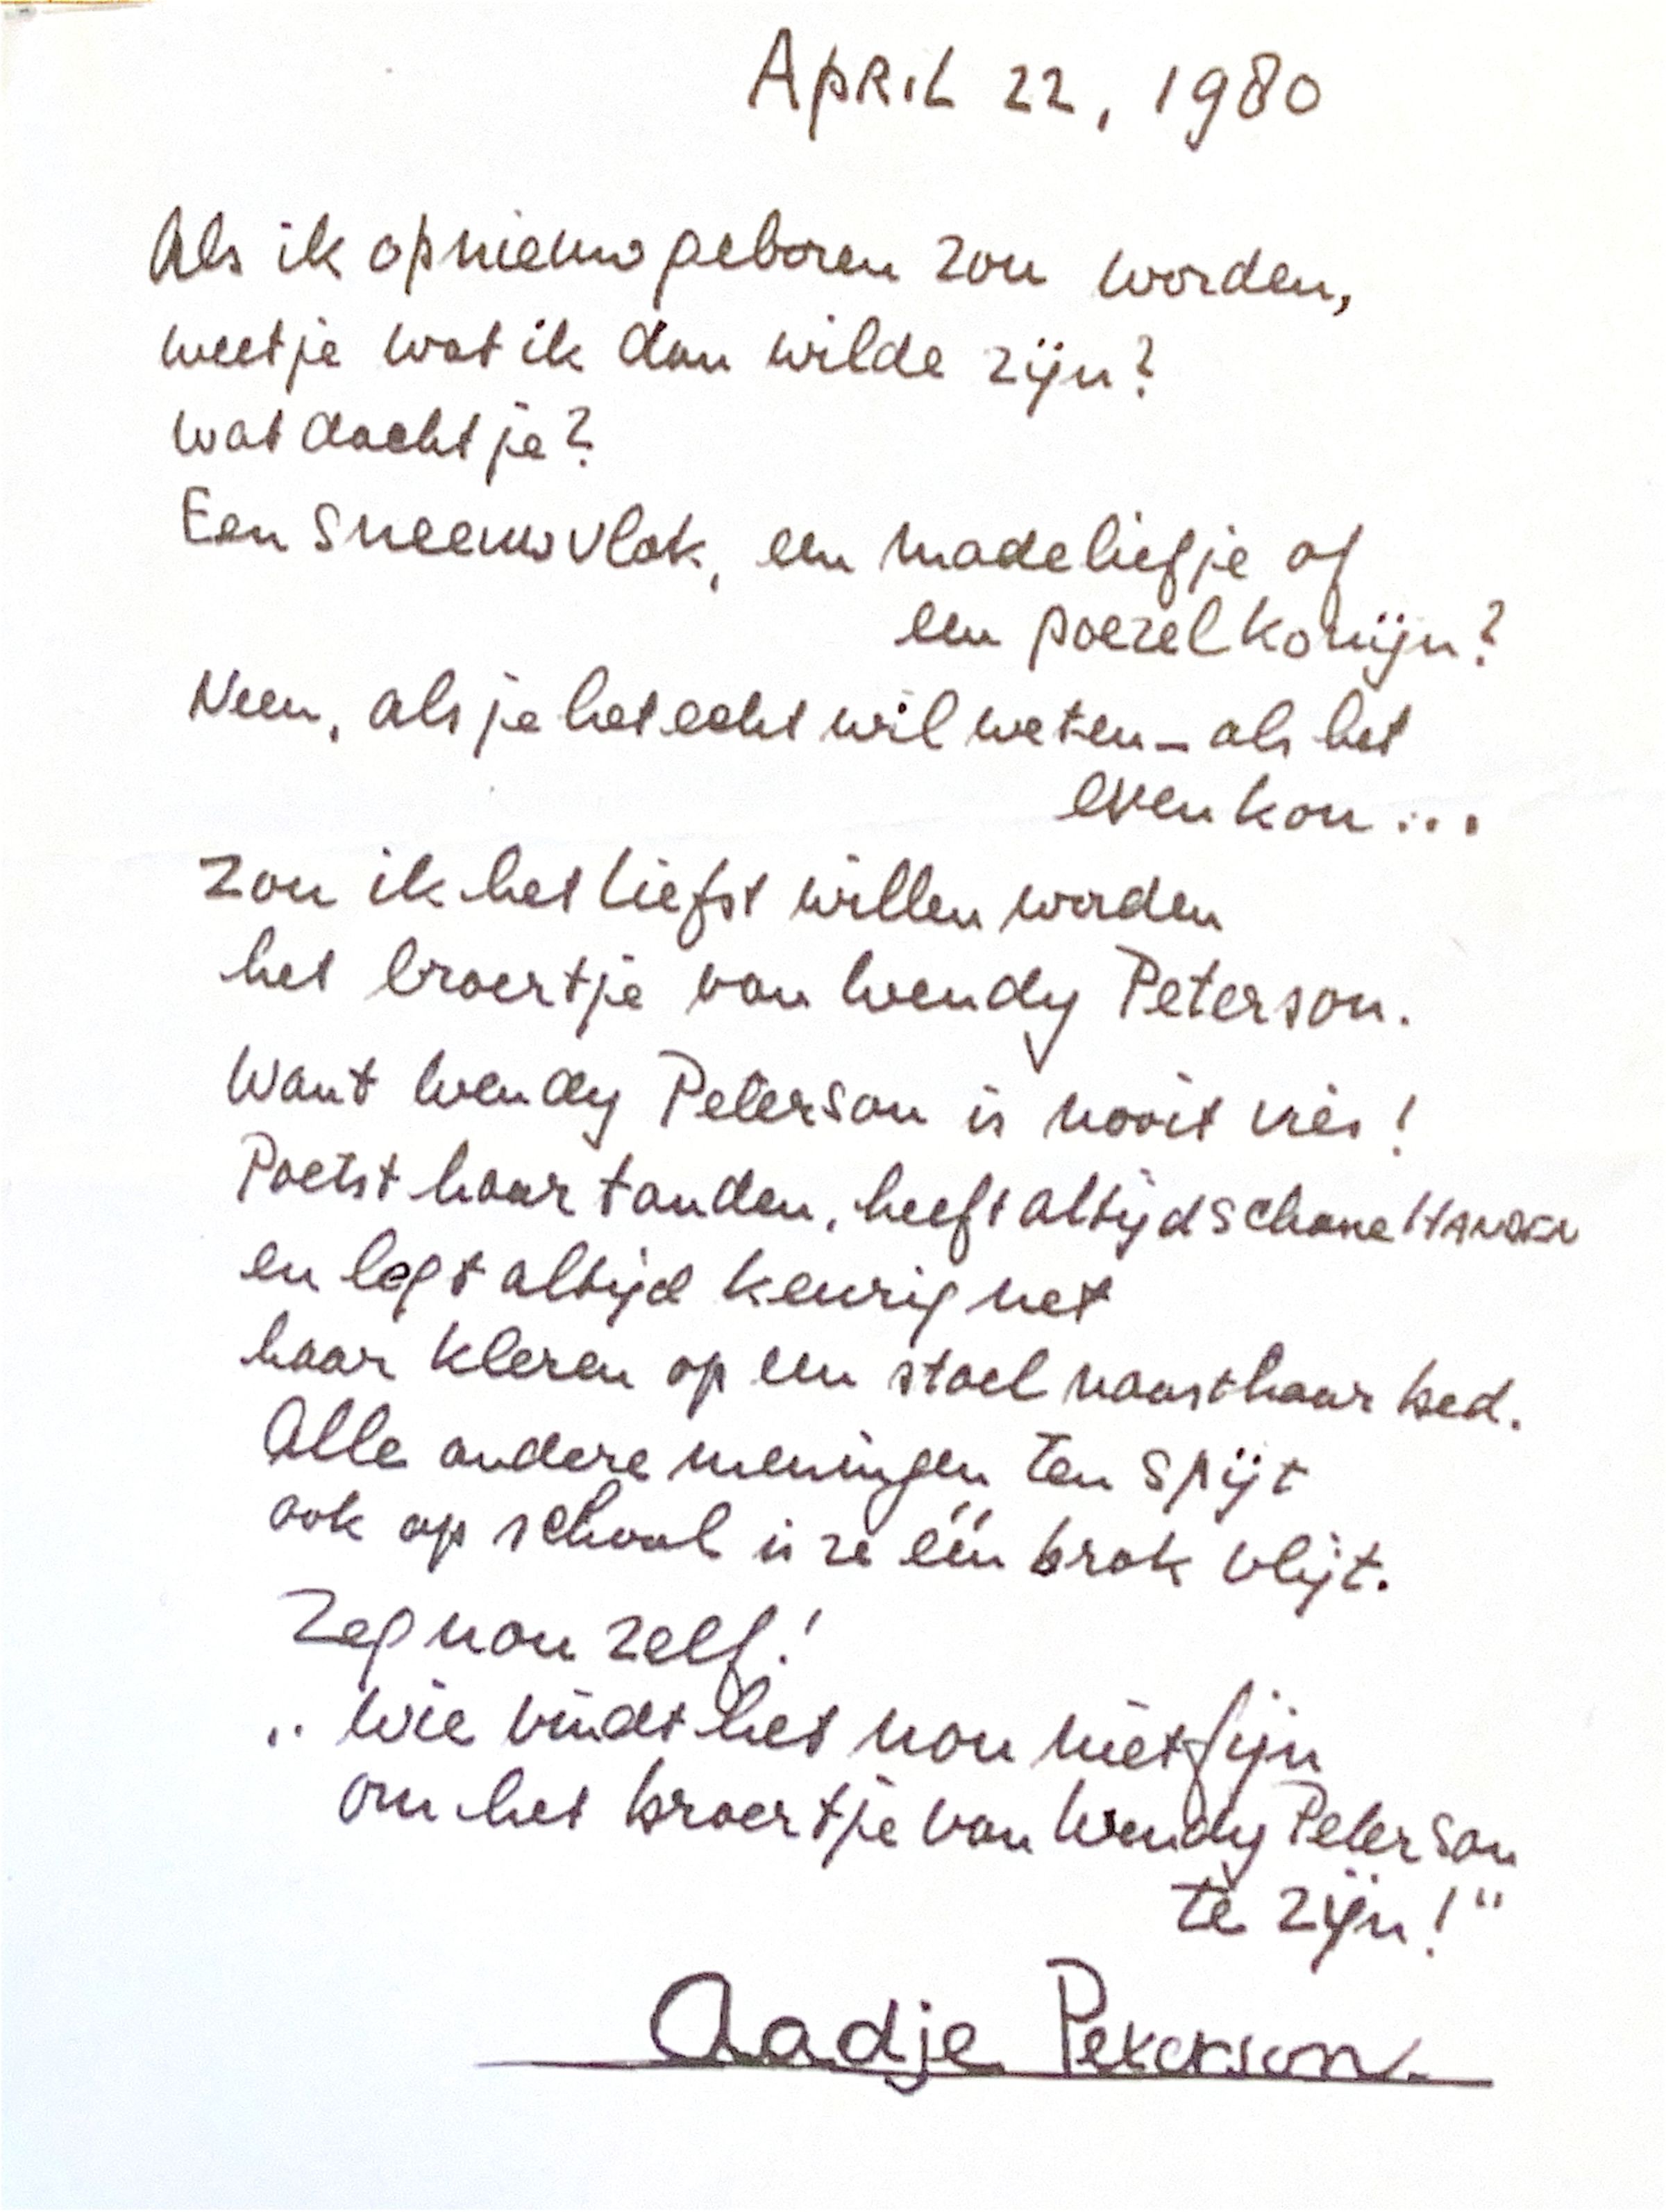 April 22, 1980
Als ik opnieuw geboren zou worden,
weet je wat ik dan wilde zijn?
Wat dacht je?
Een sneeuwvlok, een madeliefje of
een poezel konijn?
Neen, als je het echt wil weten - als het
even kon...
Zou ik het liefst willen worden
het broertje van Wendy Peterson.
Want Wendy Peterson is nooit vies!
Poetst haar tanden, heeft altijd schone HANDEN
en legt altijd keurig net
haar kleren op een stoel naast haar bed.
Alle andere meningen ten spijt
ook op school is ze één brok vlijt.
Zeg nou zelf!
„ Wie vindt het nou niet fijn
om het broertje van Wendy Peterson
te zijn!"
Aadje Peterson.